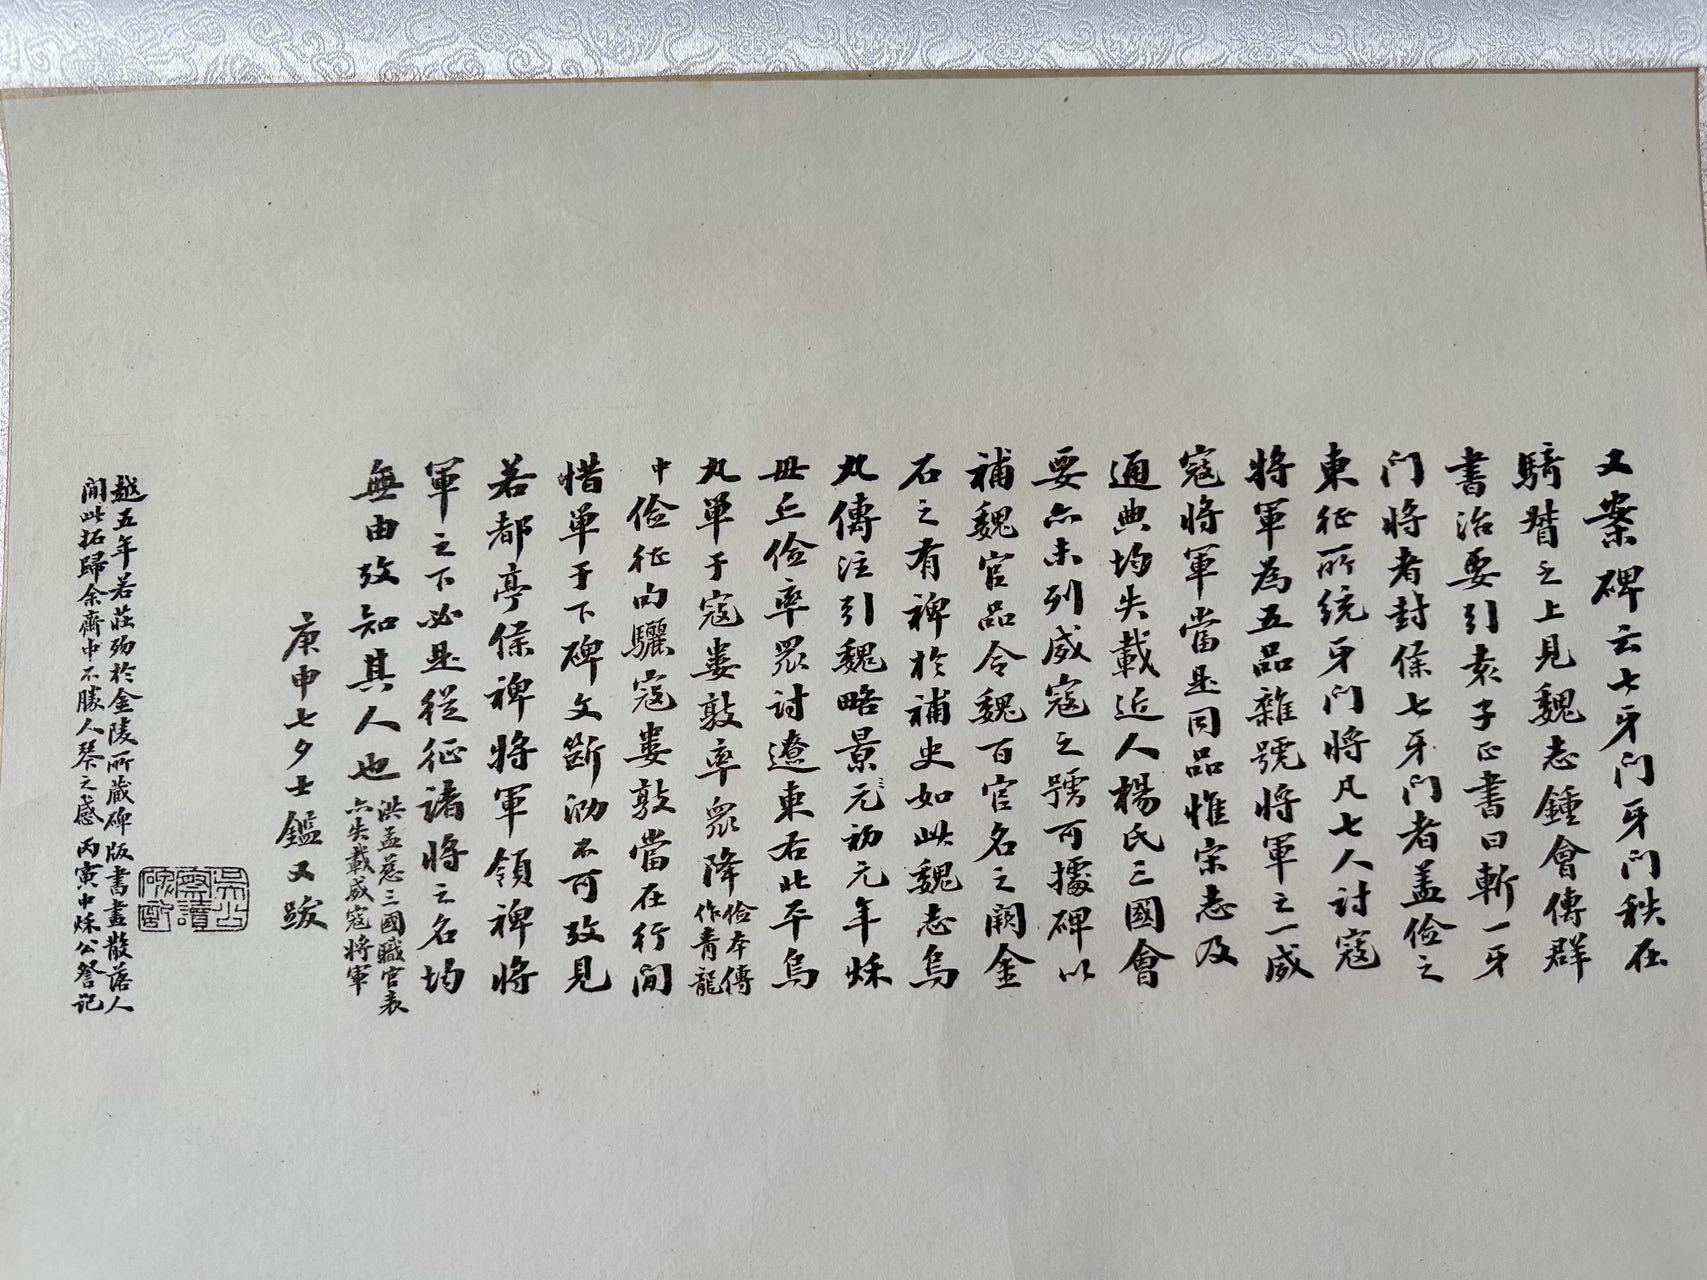 又案碑云七牙門牙門秩在
騎督之上見魏志鍾會傳群
書治要引袁子正書曰斬一牙
门將者封侯七牙门者蓋儉之
東征所统牙门將凡七人討寇
將軍為五品雜號將軍之一威
寇將軍當是同品惟宋志及
通典均失載近人楊氏三國會
要亦未列威寇之號可據碑以
補魏官品令魏百官名之闕金
石之有裨於補史如此魏志烏
丸傳注引魏略景元初元年烁
毌丘儉率眾討遼東右北平烏
丸單于寇婁敦率眾降儉本傳作青龍
中儉征句驪寇婁敦當在行間
惜單于下碑文斷泐不可攷見
若都亭侯裨將軍領裨將
軍之下必是從征諸將之名均
無由攷知其人也洪孟慈三國職官表亦失載威寇將軍
庚申七夕士鑑又跋
越五年若莊歿於金陵所藏碑版書畫散落人
間此拓歸余齋中不勝人琴之感丙寅中烁公詧記